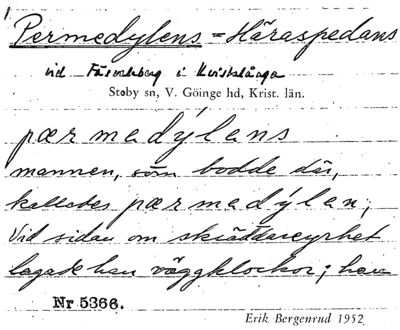 Permedylens = Häraspedans
vid Fäsvekberg i Kvistalånga
Stoby sn, V. Göinge hd, Krist. län.
pærmedýlens
mannen, som bodde där,
kallades pærmedýlen;
Vid sidan om skräddareyrket
lagade han väggklockor; han
Nr 5366.
Erik Bergenrud 1952